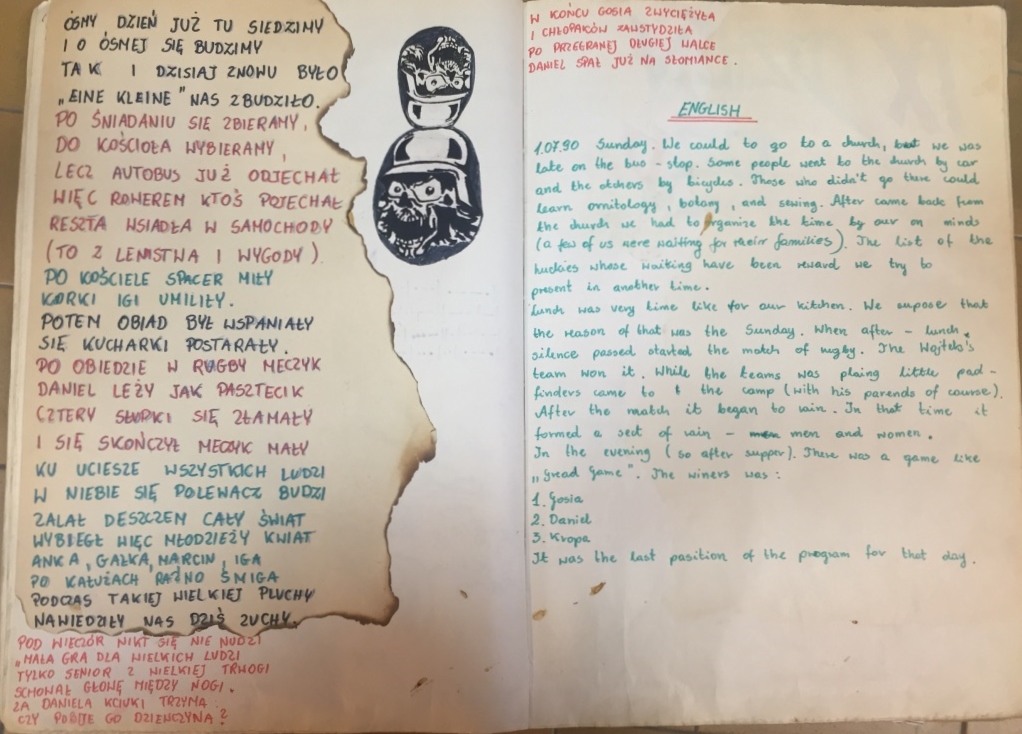 ÓSMY DZIEŃ JUŻ TU SIEDZIMY
I O ÓSMEJ SIĘ BUDZIMY
TAK I DZISIAJ ZNOWU BYŁO
„EINE KLEINE" NAS ZBUDZIŁO.
PO ŚNIADANIU SIĘ ZBIERAMY,
DO KOŚCIOŁA WYBIERAMY,
LECZ AUTOBUS JUŻ ODJECHAŁ
WIĘC ROWEREM KTOŚ POJECHAŁ
RESZTA WSIADŁA W SAMOCHODY
(TO Z LENISTWA I WYGODY).
PO KOŚCIELE SPACER MIŁY
KORKI IGI UMILIŁY.
POTEM OBIAD BYŁ WSPANIAŁY
SIĘ KUCHARKI POSTARAŁY.
PO OBIEDZIE W RUGBY MECZYK
DANIEL LEŻY JAK PASZTECIK
CZTERY SŁUPKI SIĘ ZŁAMAŁY
I SIĘ SKOŃCZYŁ MECZYK MAŁY
KU UCIESZE WSZYSTKICH LUDZI
W NIEBIE SIĘ POLEWACZ BUDZI
ZALAŁ DESZCZEM CAŁY ŚWIAT
WYBIEGŁ WIĘC MŁODZIEŻY KWIAT
ANKA, GAŁKA, MARCIN, IGA
PO KAŁUŻACH RAŹNO ŚMIGA
PODCZAS TAKIEJ WIELKIEJ PLUCHY
NAWIEDZIŁY NAS DZIŚ ZUCHY.
POD WIECZÓR NIKT SIĘ NIE NUDZI
„MAŁA GRA DLA WIELKICH LUDZI
TYLKO SENIOR Z WIELKIEJ TRWOGI
SCHOWAŁ GŁOWĘ MIĘDZY NOGI.
ZA DANIELA KCIUKI TRZYMA
CZY POBIJE GO DZIEWCZYNA?
W KOŃCU GOSIA ZWYCIĘŻYŁA
I CHŁOPAKÓW ZAWSTYDZIŁA
PO PRZEGRANEJ DŁUGIEJ WALCE
DANIEL SPAŁ JUŻ NA SŁOMIANCE.
ENGLISH
1.07.90 Sunday. We could to go to a church, but we was
late on the bus - stop. Some people went to the church by car
and the otchers by bicycles. Those who didn't go there could
learn ornitology, botany, and sewing. After came back from
the church we had to organize the time by our on minds
(a few of us were waiting for their families). The list of the
huckies whose waiting have been reward we try to
present in another time.
Lunch was very time like for our kitchen. We supose that
the reason of that was the Sunday. When after - lunch
silence passed started the match of rugby. The Wojtek's
team won it. While the teams was plaing little pad-
finders came to the camp (with his parends of course).
After the match it began to rain. In that time it
formed a sect of rain - men and women.
In the evening (so after supper). There was a game like
„Gread Game". The winers was:
1. Gosia
2. Daniel
3. Kropa
It was the last position of the program for that day.